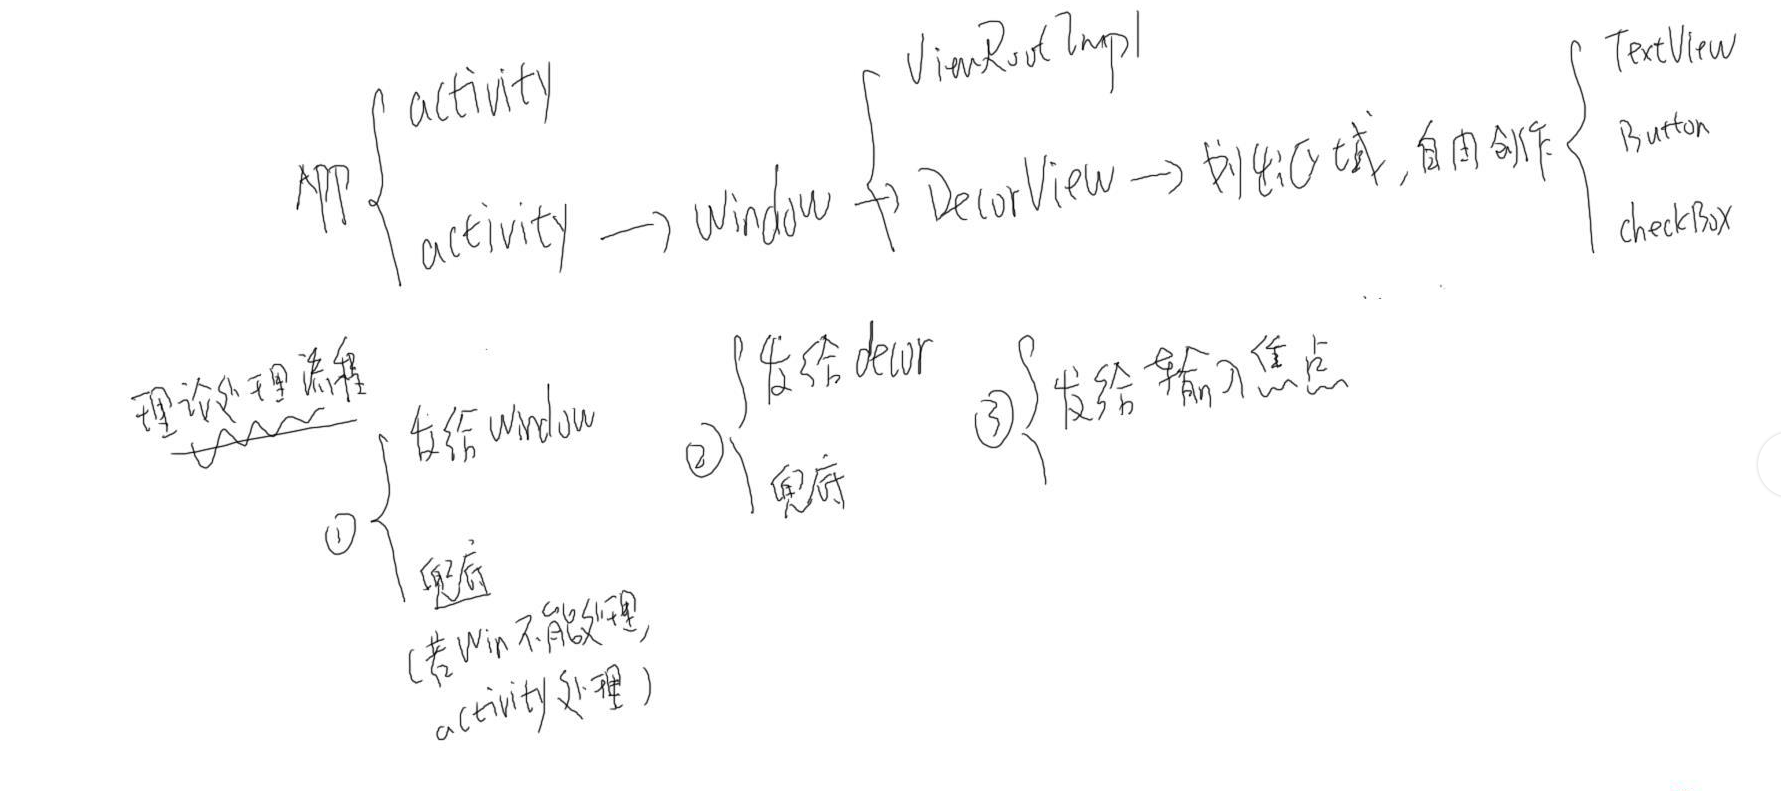 APP
activity
activity → Window
ViewRootImpl
→ DecorView → 划出区域,自由创作
TextView
Button
checkBox
理论处理流程
① 发给window
兜底
(若Win不能处理,
activity处理)
② 发给decor
兜底
③ 发给输入焦点